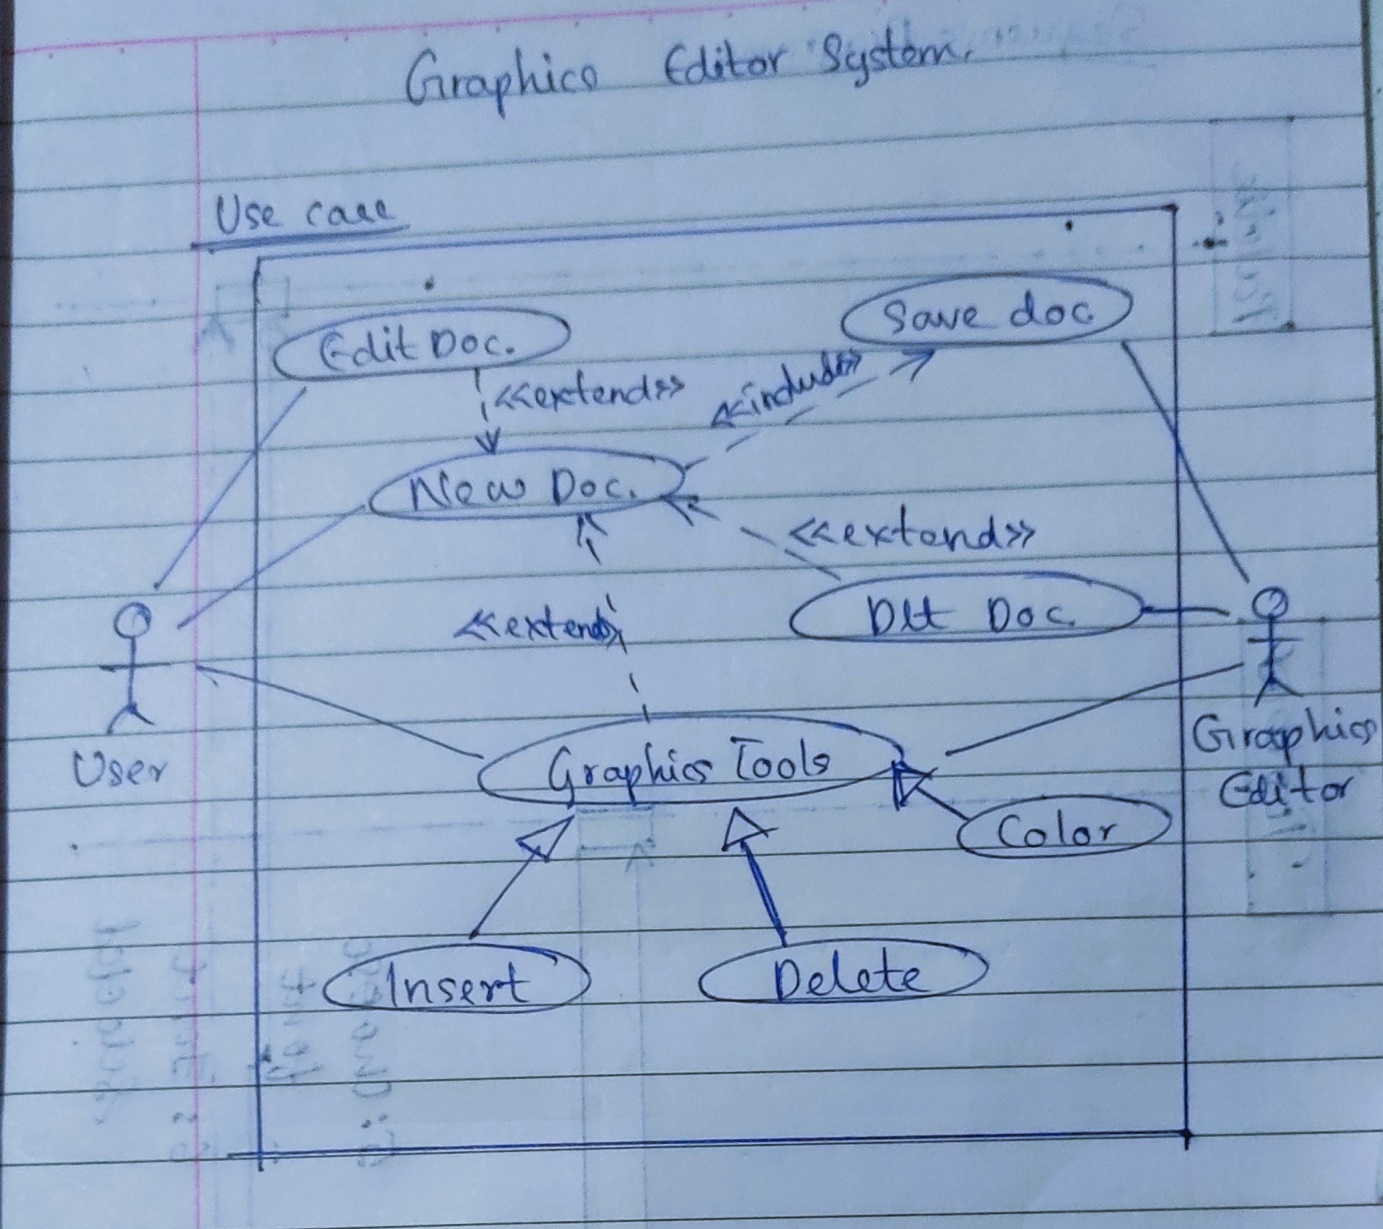 Graphics Editor System.
Use case
Edit Doc.
Save doc
<<extend>>
<<include>>
New Doc.
<<extend>>
<<extend>>
Dlt Doc.
User
Graphics Tools
Graphics
Editor
Color
Insert
Delete